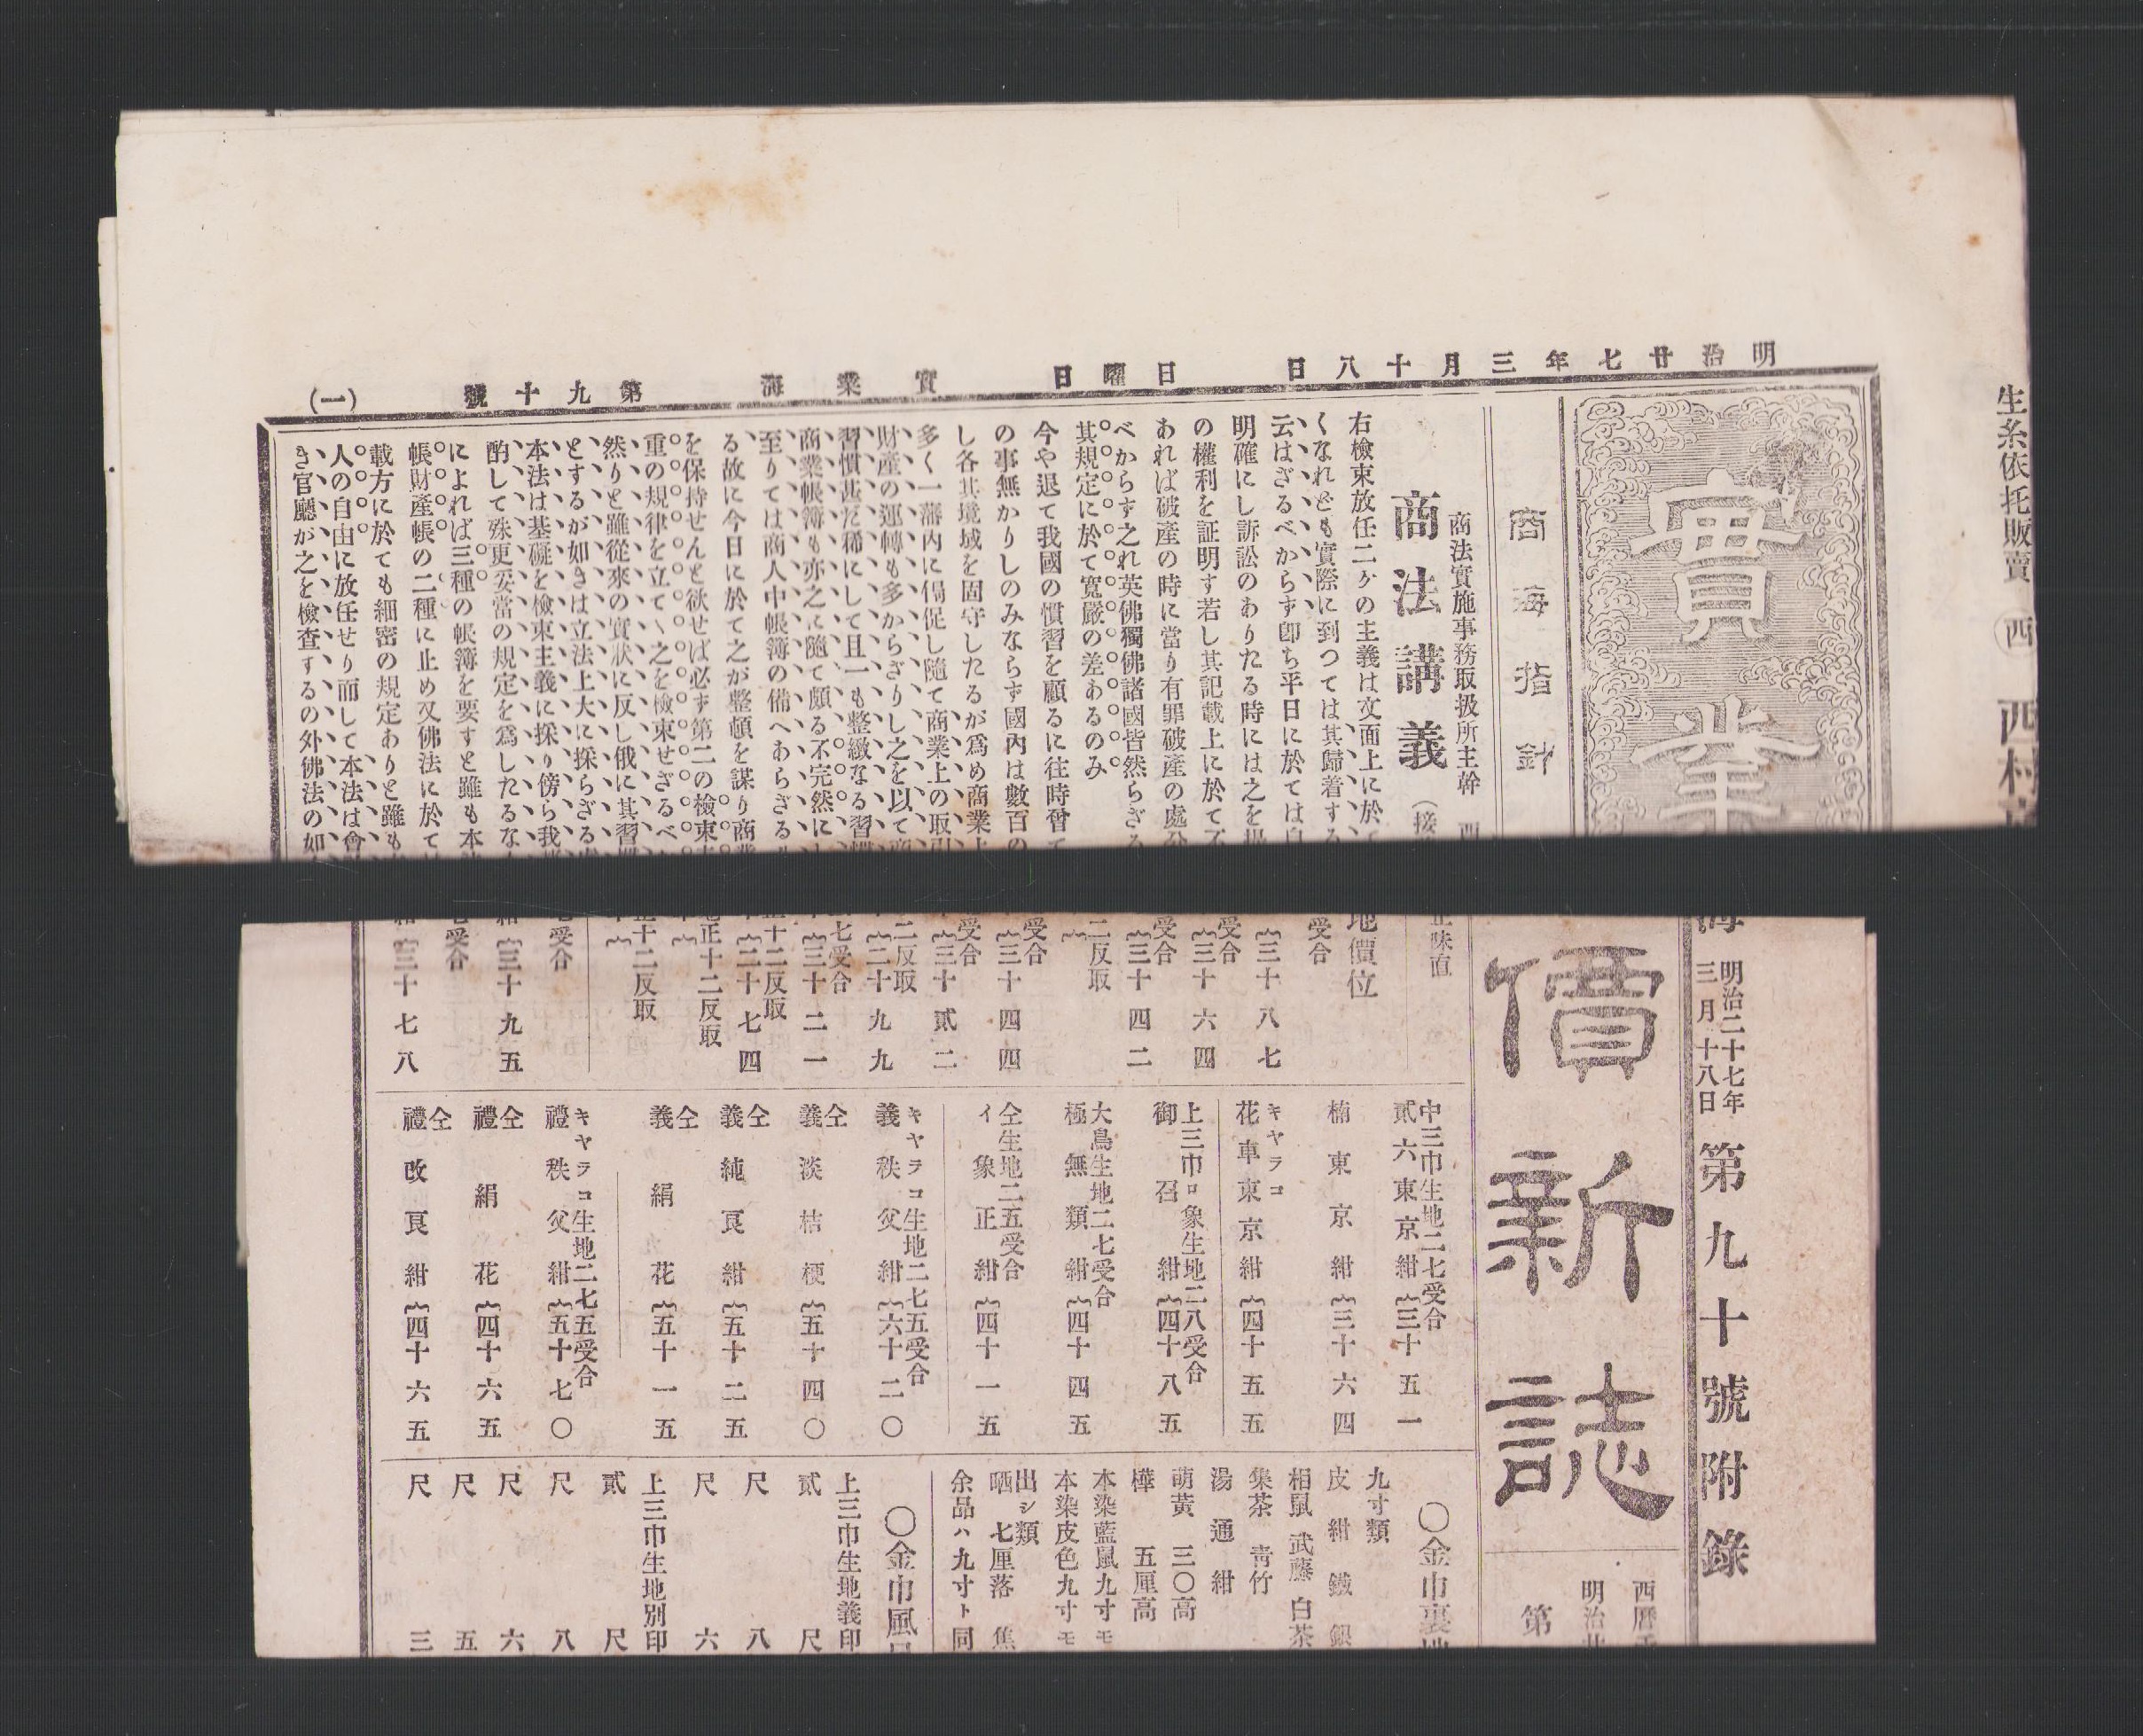 明治廿七年三月十八日
日曜日
實業海
第九十號
(一)
生糸依托販賣 ㊄ 西村
實業
商海指針
商法實施事務取扱所主幹
商法講義 (接
右檢束放任二ケの主義は文面上に於
くなれども實際に到つては其歸着する
云はざるべからず卽ち平日に於ては自
明確にし訴訟のありたる時には之を
の權利を証明す若し其記載上に於て不
あれば破産の時に當り有罪破産の處分
べからす之れ英佛獨佛諸國皆然らざる
其規定に於て寬嚴の差あるのみ
今や退て我國の慣習を顧るに往時嘗て
の事無かりしのみならず國內は數百の
し各其境域を固守したるが爲め商業上
多く一藩內に偈促し隨て商業上の取引
財產の運轉も多からざりし之を以て商
習慣甚だ稀にして且一も整緻なる習慣
商業帳簿も亦之に隨て頗る不完然に
至りては商人中帳簿の備へあらざる
る故に今日に於て之が整頓を謀り商業
を保持せんと欲せば必ず第二の檢束
重の規律を立てゝ之を檢束せざるべ
然りと雖從來の實狀に反し俄に其習慣
とするが如きは立法上大に採らざる
本法は基礎を檢束主義に採り傍ら我
酌して殊更妥當の規定を爲したるな
によれば三種の帳簿を要すと雖も本
帳財產帳の二種に止め又佛法に於て
載方に於ても細密の規定ありと雖も
人の自由に放任せり而して本法は會
き官廳が之を檢查するの外佛法の如
海 明治二十七年三月十八日 第九十號附錄
價新誌
西曆
明治廿
第
正味直
地價位
受合
{三十八七
受合
{三十六四
受合
{三十四二
二反取
{
受合
{三十四四
受合
{三十貳二
二反取
{二十九九
七受合
{三十二一
正十二反取
{二十七四
地正十二反取
{
正十二反取
{
受合
紺{三十九五
受合
紺{三十七八
中三巾生地二七受合
貳六東京紺{三十五一
楠東京紺{三十六四
キヤラコ
花車東京紺{四十五五
上三巾ロ象生地二八受合
御召紺{四十八五
大鳥生地二七受合
極無類紺{四十四五
仝生地二五受合
イ象正紺{四十一五
キヤラコ生地二七五受合
義秩父紺{六十二〇
仝
義淡桔梗{五十四〇
仝
義純良紺{五十二五
仝
義絹花{五十一五
キヤラコ生地二七五受合
禮秩父紺{五十七〇
仝
禮絹花{四十六五
仝
禮改良紺{四十六五
〇金巾裏地
九寸類
皮紺鐵銀
相鼠武藤白茶
集茶靑竹
湯通紺
萌黃三〇高
樺五厘高
本染藍鼠九寸モ
本染皮色九寸モ
出シ類
晒七厘落焦
余品ハ九寸ト同
〇金巾風呂
上三巾生地義印
貳尺
尺八
尺六
上三巾生地別印
貳尺
尺八
尺六
尺五
尺三